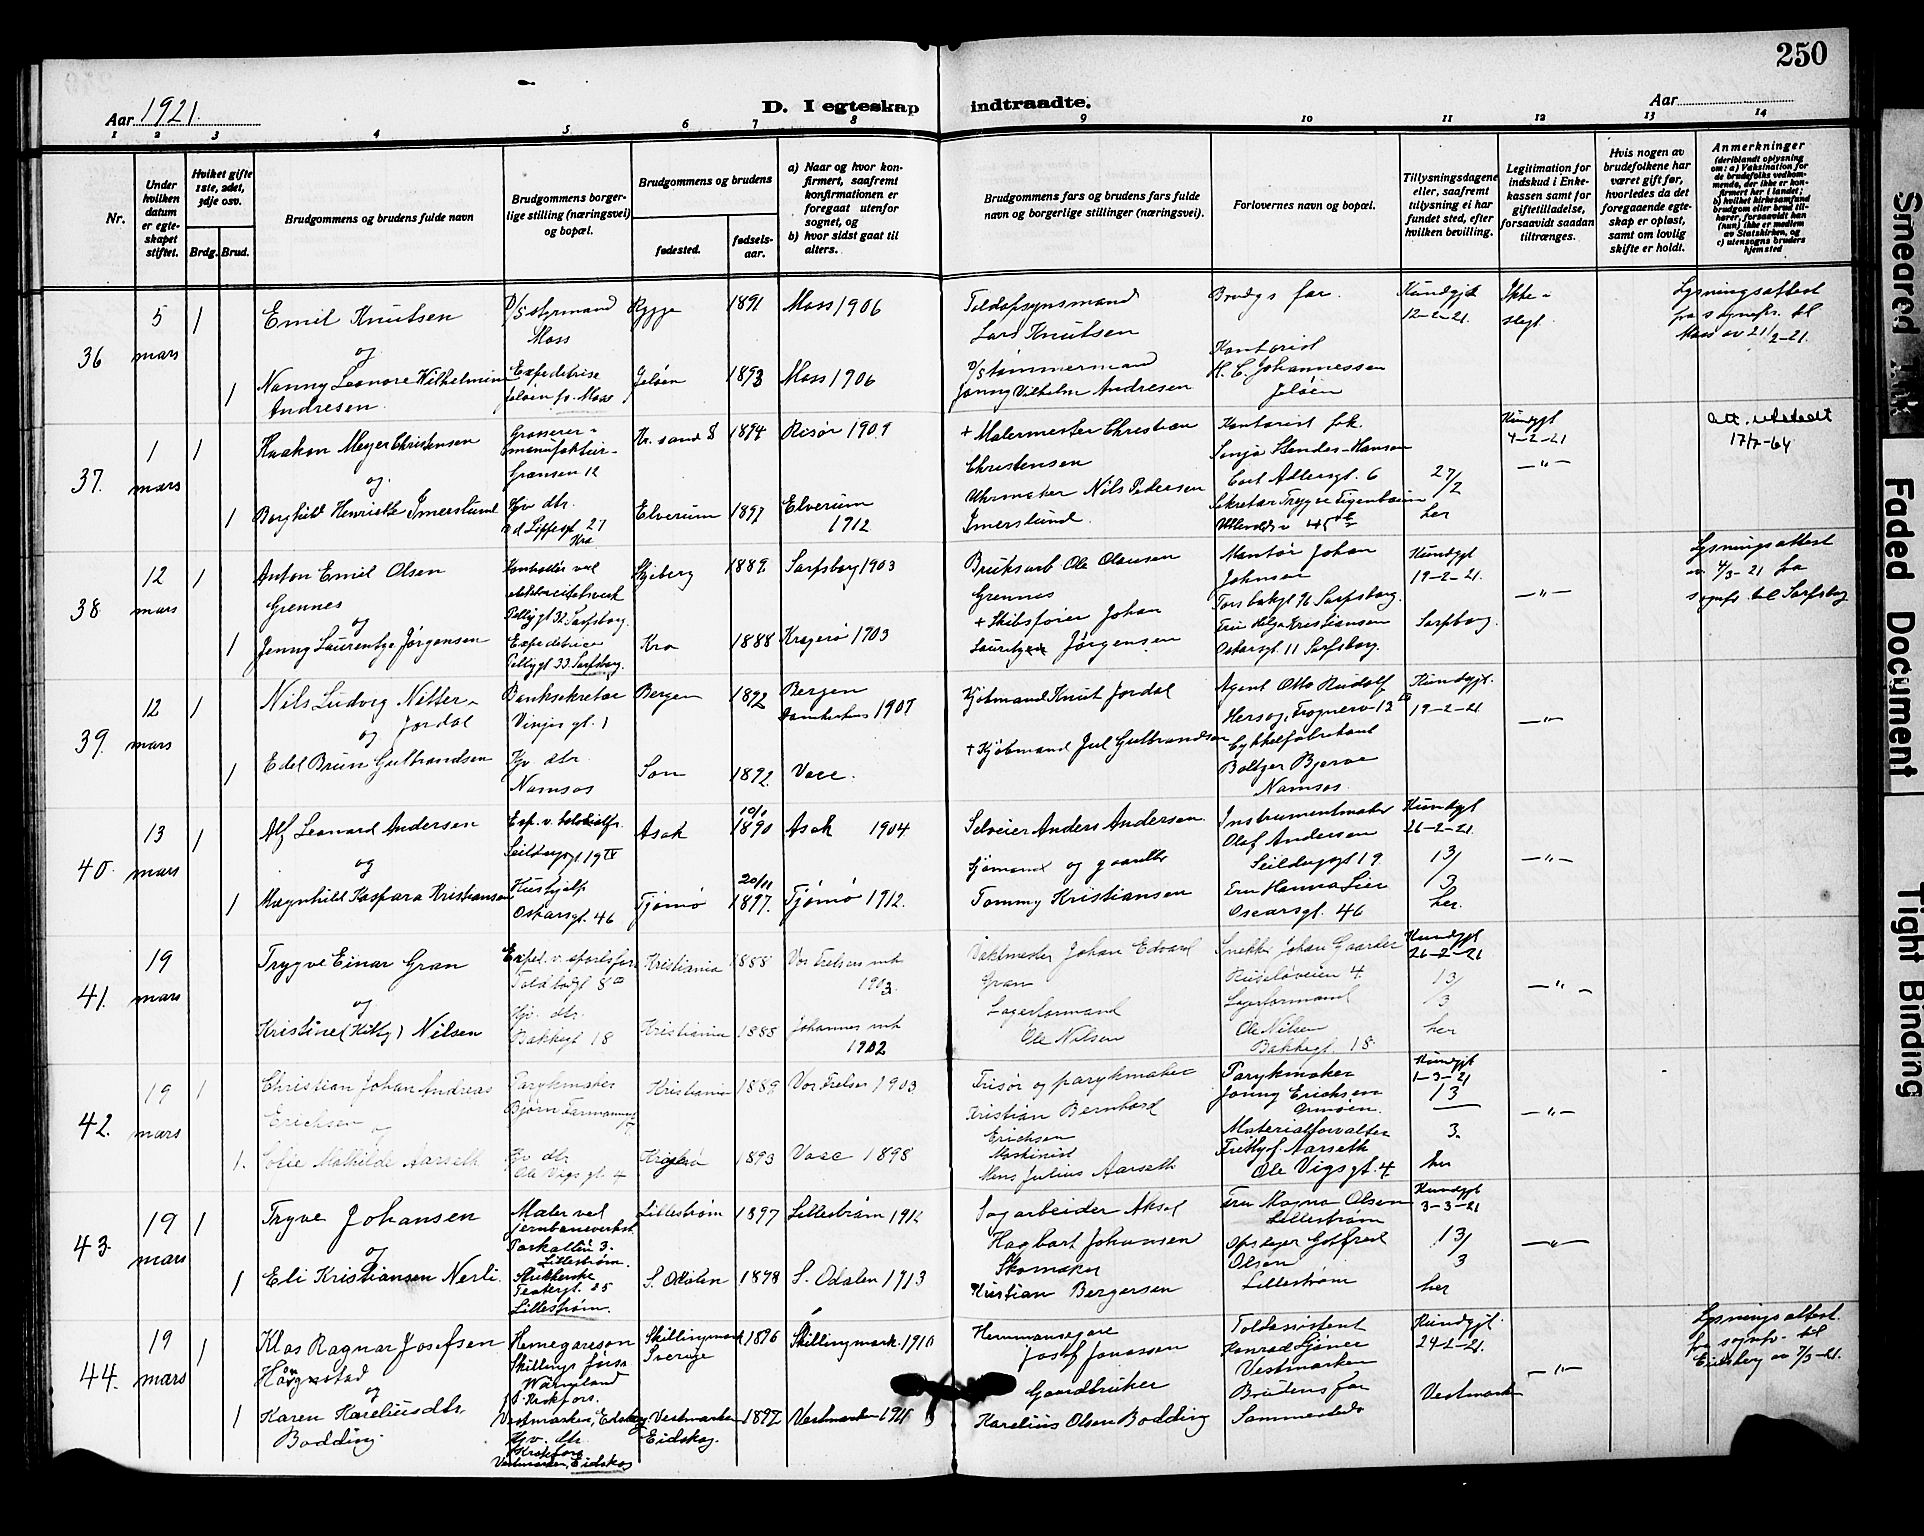 250
Aar 1921.
D. I egteskap indtraadte.
Aar
1 2 3 4 5 6 7 8 9 10 11 12 13 14
Nr.
Under hvilken datum er egteskapet stiftet.
Hvilket gifte 1ste, 2det, 3dje osv.
Brdg. Brud.
Brudgommens og brudens fulde navn
Brudgommens borgerlige stilling (næringsvei) og bopæl.
Brudgommens og brudens
fødested.
fødsels-aar.
a) Naar og hvor konfirmert, saafremt konfirmationen er foregaat utenfor sognet, og
b) hvor sidst gaat til alters.
Brudgommens fars og brudens fars fulde navn og borgerlige stillinger (næringsvei).
Forlovernes navn og bopæl.
Tillysningsdagene eller, saafremt tillysning ei har fundet sted, efter hvilken bevilling.
Legitimation for indskud i Enkekassen samt for giftetilladelse, forsaavidt saadan tiltrænges.
Hvis nogen av brudefolkene har været gift før, hvorledes da det foregaaende egteskap er opløst, samt om lovlig skifte er holdt.
Anmerkninger
(deriblandt oplysning om: a) Vaksination for de brudefolks vedkommende, der ikke er konfirmert her i landet; b) hvilket kirkesamfund brudgom eller brud tilhører, forsaavidt han (hun) ikke er medlem av Statskirken, og c) utensogns bruders hjemsted
36
5 mars
1
Emil Knutsen
og
D/S styrmand
Moss
Rygge
1891
Moss 1906
Toldopsynsmand
Lars Knutsen
Brudgs far.
Kundgjt
12-2-21.
Ikke
slegt.
Lysningsattest
fra sognepr. til
Moss av 21/2-21.
1
Nanny Leonore Wilhelmine
Andresen.
Expeditrise
Jeløen pr. Moss
Jeløen
1893
Moss 1906
D/S tømmermand
Jonny Vilhelm Andresen
Kontorist
H. C. Johannessen
Jeløen
37.
1 mars
1
Haakon Meyer Christensen
og
Grosserer
manufaktur
Grænsen 12
Kr. sand S
1894
Risør 1909
+ Malermester Christian
Christensen
Kontorist frk.
Sonja Stender-Hansen
Cort Adlersgt. 6
27/2
her
Kundgjt
4-2-21
—"—
Att. utstedt
17/7-64
1
Borghild Henriette Imerslund
Hjv. dtr.
v. d. Lippesgt 27
Kra
Elverum
1897
Elverum
1912
Uhrmaker Nils Pedersen
Imerslund.
Sekretær Trygve Figenbaum
38
12 mars
1
Anton Emil Olsen
Grennes
og
Kontrollør ved
elektricitetsverk
Pellygt 32 Sarpsborg.
Skjeberg
1889.
Sarpsborg 1903
Bruksarb. Ole Olausen
Grennes
Montør Johan
Johnsen
Torsbekgt 76 Sarpsborg.
Kundgjt
19-2-21.
Sarpsborg.
—"—
Lysningsattest
av 4/3-21 fra
sognepr. til Sarpsborg
1
Jenny Laurentze Jørgensen
Expeditrice
Pellygt 33 Sarpsborg.
Kra
1888
Kragerø 1903
+ Skibsfører Johan
Lauritzen Jørgensen
Fru Helga Kristiansen
Oskarsgt 11 Sarpsborg.
39.
12 mars
1
Nils Ludvig Nitter-
Jordal
og
Banksekretær
Visesgt. 1
Bergen
1892
Bergen
Domkirken 1907
Kjøbmand Knut Jordal
Agent Otto Rudolf
Hersog, Frognerv 12
Kundgjt.
19-2-21
—"—
1
Edel Bruun Gulbrandsen
Hjv. dtr.
Namsos
Son
1892.
Vaae.
+ Kjøbmand Jul Gulbrandsen
Cykkelfabrikant
Boltzer Bjerve
Namsos.
40.
13 mars
1
Alf Leonard Andersen
og
Seildugsgt 19 IV
Asak
10/1
1890
Asak 1904
Selveier Anders Andersen
Instrumentmaker
Olaf Andersen
Seildugsgt 19
Kundgjt
26-2-21.
13/3
her.
—"—
1
Magnhild Kaspara Kristiansen
Hushjælp
Oskarsgt. 46
Tjømø
20/11
1897.
Tjømø 1912.
Sjømand og gaardbr
Tommy Kristiansen
Fru Hanna Lier
Oscarsgt. 46
41.
19 mars
Trygve Einar Gran
og
Exped. v. sporsforv.
Toldbodgt 8a
Kristiania
1888
Vor Frelsers mh
1903.
Vaktmester Johan Edvard
Gran
Snekker Johan Gaarder
Huseløveien 4.
Kundgjt
26-2-21
13/3
her
—"—
Kristine (Kitty) Nilsen
Hjv. dtr.
Bakkegt 18
Kristiania
1888
Johannes mh
1902
Lagerformand
Ole Nilsen
Lagerformand
Ole Nilsen
Bakkegt. 18
42.
19 mars
1
Christian Johan Andreas
Erichsen
og
Parykmaker
Kristiania
1889
Vor Frelser 1903
Frisør og parykmaker
Kristian Bernhard
Erichsen
Parykmaker
Jonny Erichsen
Kundgjt
1-3-21
13
3.
her
—"—
1.
Sofie Mathilde Aarseth
Hjv. dtr.
Ole Vigsgt. 4
1893
Vaae 1898
Maskinist
Mens Julius Aarseth
Materialforvalter
Fridtjof Aarseth
Ole Vigsgt. 4
43.
19 mars
1
Tryve Johansen
og
Maler ved
jernbaneverkst.
Parkalleen 3.
Lillestrøm.
Lillestrøm
1897
Lillestrøm 1912
Sagarbeider Aksel
Hagbart Johansen
Fru Magna Olsen
Lillestrøm
Kundgjt
3-3-21
13/3
her
—"—
1
Eli Kristiansen Nerli.
Strikkerske
Teatergt. 25
Lillestrøm.
S. Odalen
1898
S. Odalen 1913
Skomaker
Kristian Bergersen
Opsleger Gotfred
Olsen
Lillestrøm
44.
19 mars
1
Klas Ragnar Josefsen
Högnstad
og
Hemegareson
Skillings fors
Wärmland
Skillingmark
Sverige
1896
Skillingmark. 1910
Hemmansegare
Josef Jonasson
Toldassistent
Konrad Sjønee
Vestmarken
Kundgjt.
24-2-21.
Vestmark
—"—
Lysningsattest.
fra sognepr. til
Eidsberg av 7/3-21.
1
Karen Hareliusdtr.
Bodding.
Vestmarken, Eidskog
Hjv. dtr.
Vestmarken, Eidskog
Vestmarken
Eidskog.
1892
Vestmarken 1911
Gaardbruker
Harelius Olsen Bodding
Brudens far
Sammesteds
Smeared Ink
Faded Document
Tight Binding